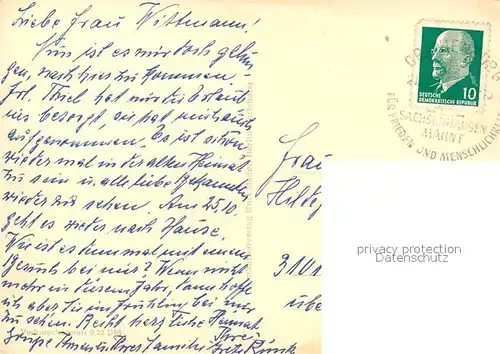 Liebe Frau Wittmann!
Nun ist es mir doch gelun-
gen, nach hier zu kommen -
Frl. Thiel hat mir die
besorgt, und hat mich auch
aufgenommen. Es ist schön
wieder mal in der alten Heimat
zu sein u. alle liebe Bekannten
wieder zu sehen. Am 25.10.
geht es wieder nach Hause.
Wie ist es denn mal mit einem
Besuch bei mir? Wenn nicht
mehr in diesem Jahr, dann hoffe
ich aber Sie im Frühling bei mir
zu sehen. Recht herzliche Heimat
grüße Ihnen u. Ihrer Familie Ihre
Frau
3101
DEUTSCHE
DEMOKRATISCHE REPUBLIK
10
SACHSENHAUSEN
MAHNT
FÜR FRIEDEN UND MENSCHLICHKEIT
privacy protection
DAPR
Verbraucherpreis 0,22 DM